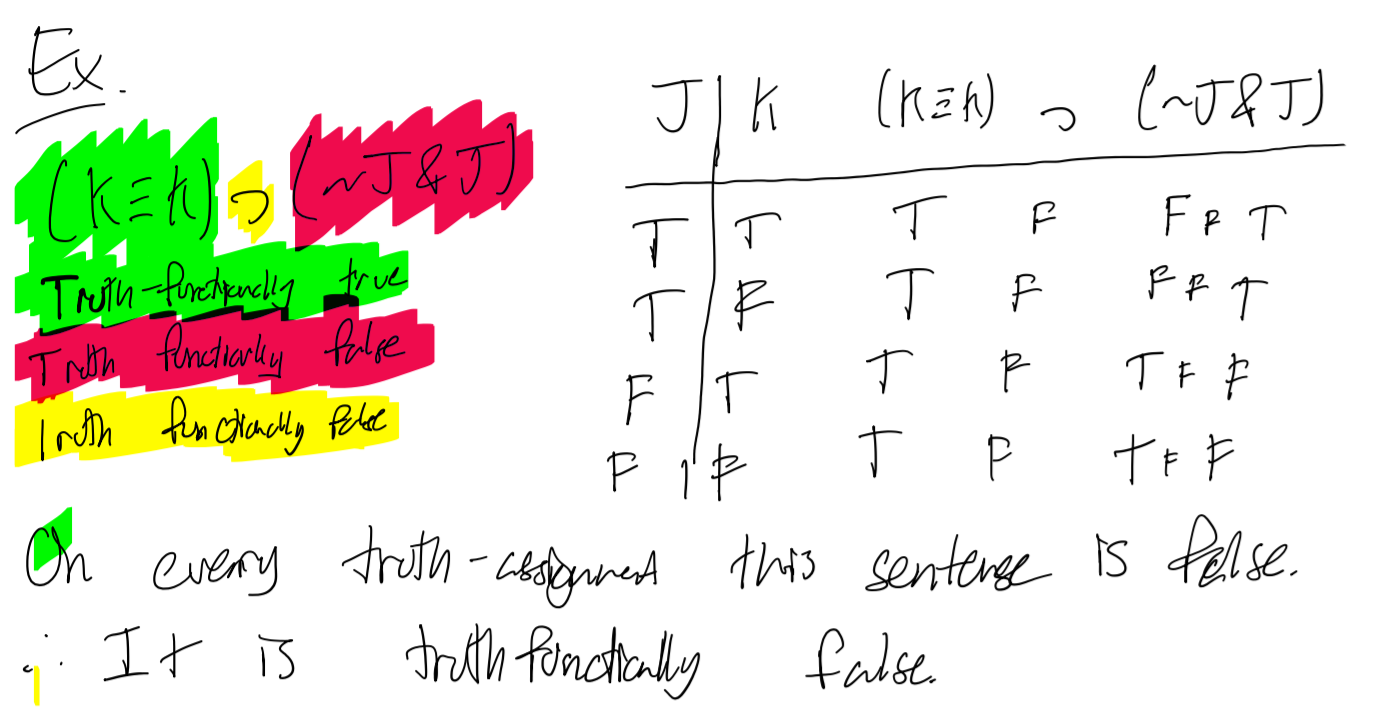 Ex.
(K≡K) ⊃ (~J & J)
Truth-functionally true
Truth functionally false
Truth functionally false
J | K (K≡K) ⊃ (~J & J)
T T T F F F T
T F T F F F T
F T T F T F F
F F T F T F F
On every truth-assignment this sentence is false.
∴ It is truth functionally false.